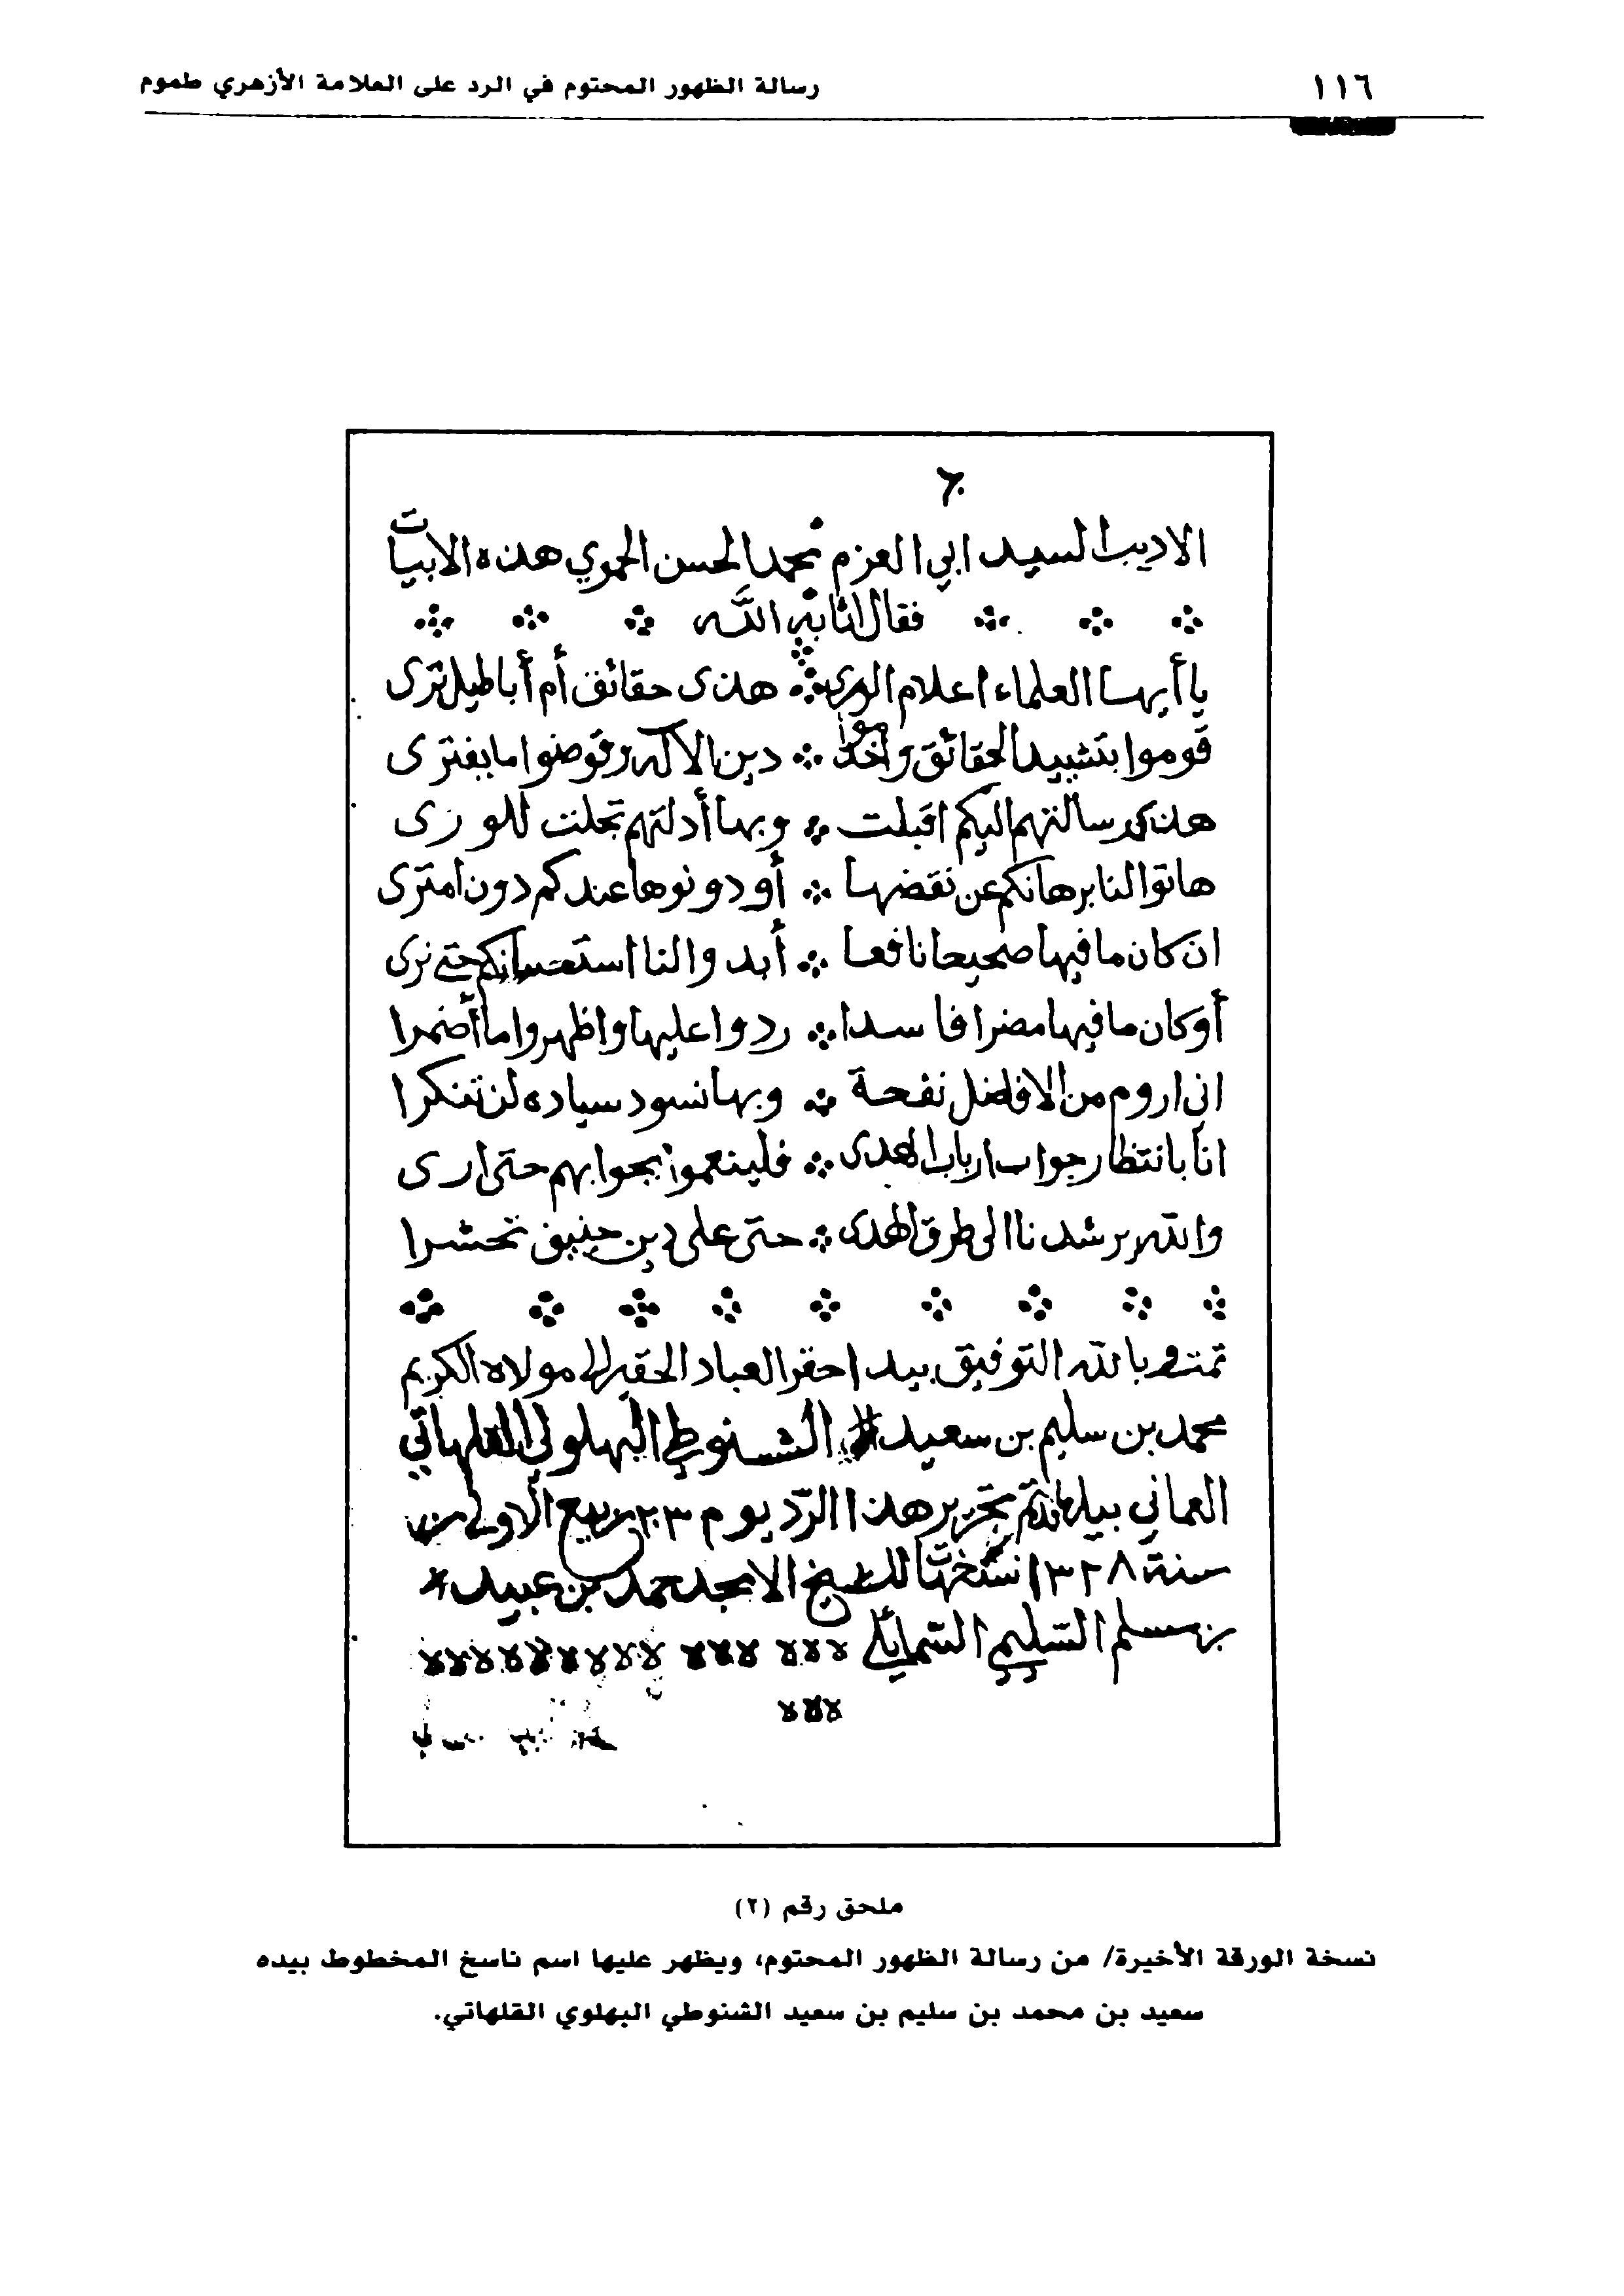 ١١٦
رسالة الظهور المحتوم في الرد على العلامة الأزهري طموم
الاديب السيد ابي العزم محمد الحسن الحموي هذه الابيات
فقال اثابه الله
يا أيها العلماء اعلام الورى هذى حقائق أم أباطيل ترى
قوموا بتشييد الحقائق واخدموا دين الاله وقوضوا ما يفترى
هذى رسالتهم اليكم اقبلت وبها أدلتهم تجلت للورى
هاتوا لنا برهانكم عن نقضها أو دونوها عندكم دون امترى
ان كان ما فيها صحيحا نافعا أبدوا لنا استحسانكم حتى نرى
أو كان ما فيها مضرا فاسدا ردوا عليها واظهروا ما أضمرا
اني اروم من الافاضل نفحة وبها نسود سياده لن تنكرا
انا بانتظار جواب ارباب الهدى فلينعموا بجوابهم حتى ارى
والله يرشدنا الى طرق الهدى حتى على دين حنيف نحشرا
تمت وبالله التوفيق بيد احقر العباد الحقير الى مولاه الكريم
محمد بن سليم بن سعيد الشنوطي البهلولي القلهاتي
العماني بيده تم تحرير هذا الرد يوم ٢٣ ربيع الأول من
سنة ١٣٢٨ نسختها للشيخ الامجد حمد بن عبيد
بن مسلم السليمي السمائلي
ملحق رقم (٢)
نسخة الورقة الأخيرة/ من رسالة الظهور المحتوم، ويظهر عليها اسم ناسخ المخطوط بيده
سعيد بن محمد بن سليم بن سعيد الشنوطي البهلوي القلهاتي.